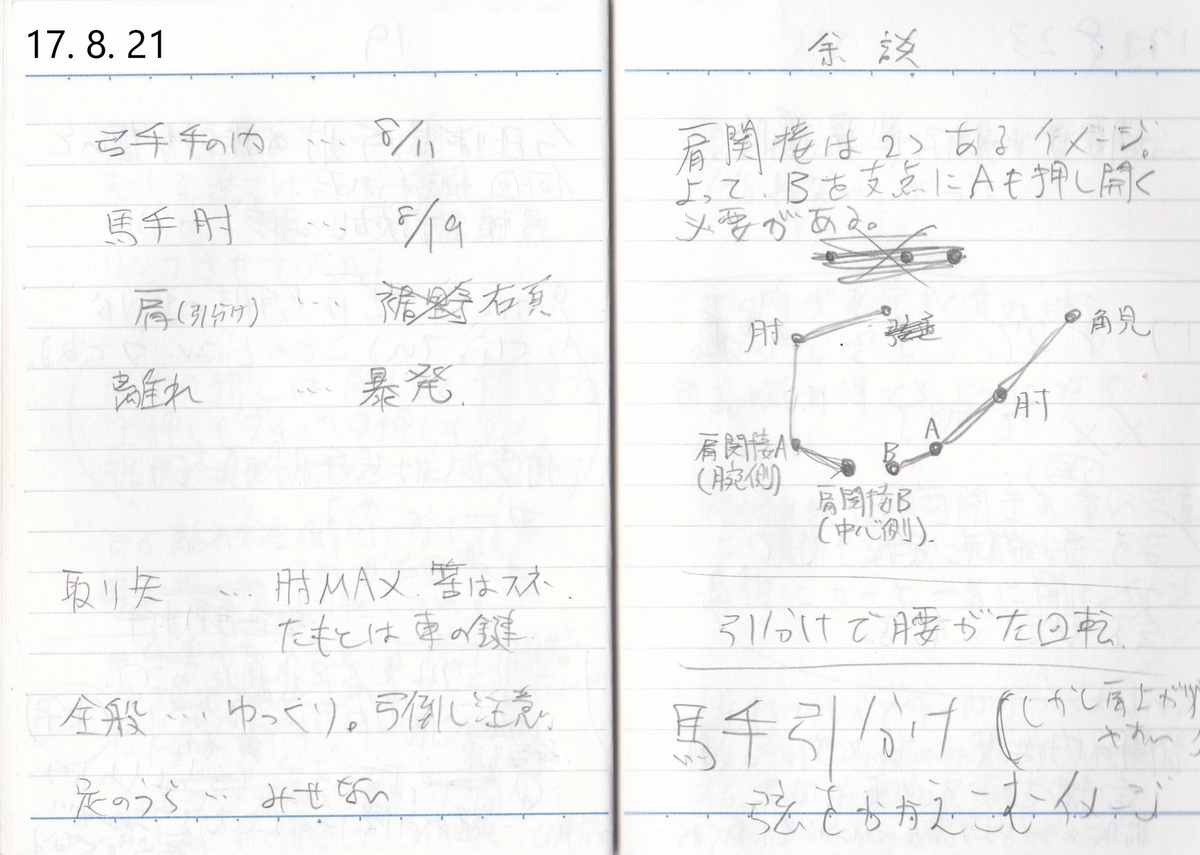 17. 8. 21
弓手手の内 … 8/11
馬手肘 … 8/19
肩(引分け) … 右頁
離れ … 暴発.
取り矢 … 肘MAX. 筈はスネ.
たもとは車の鍵
全般 … ゆっくり。弓倒し注意.
足のうら … みせない
余談
肩関接は2つあるイメージ。
よって、Bを支点にAも押し開く
必要がある。
肘
角見
肘
A
B
肩関接A
(腕側)
肩関接B
(中心側).
引分けで腰がた回転.
馬手引分け (しかし肩上が
弦をかかえこむイメージ